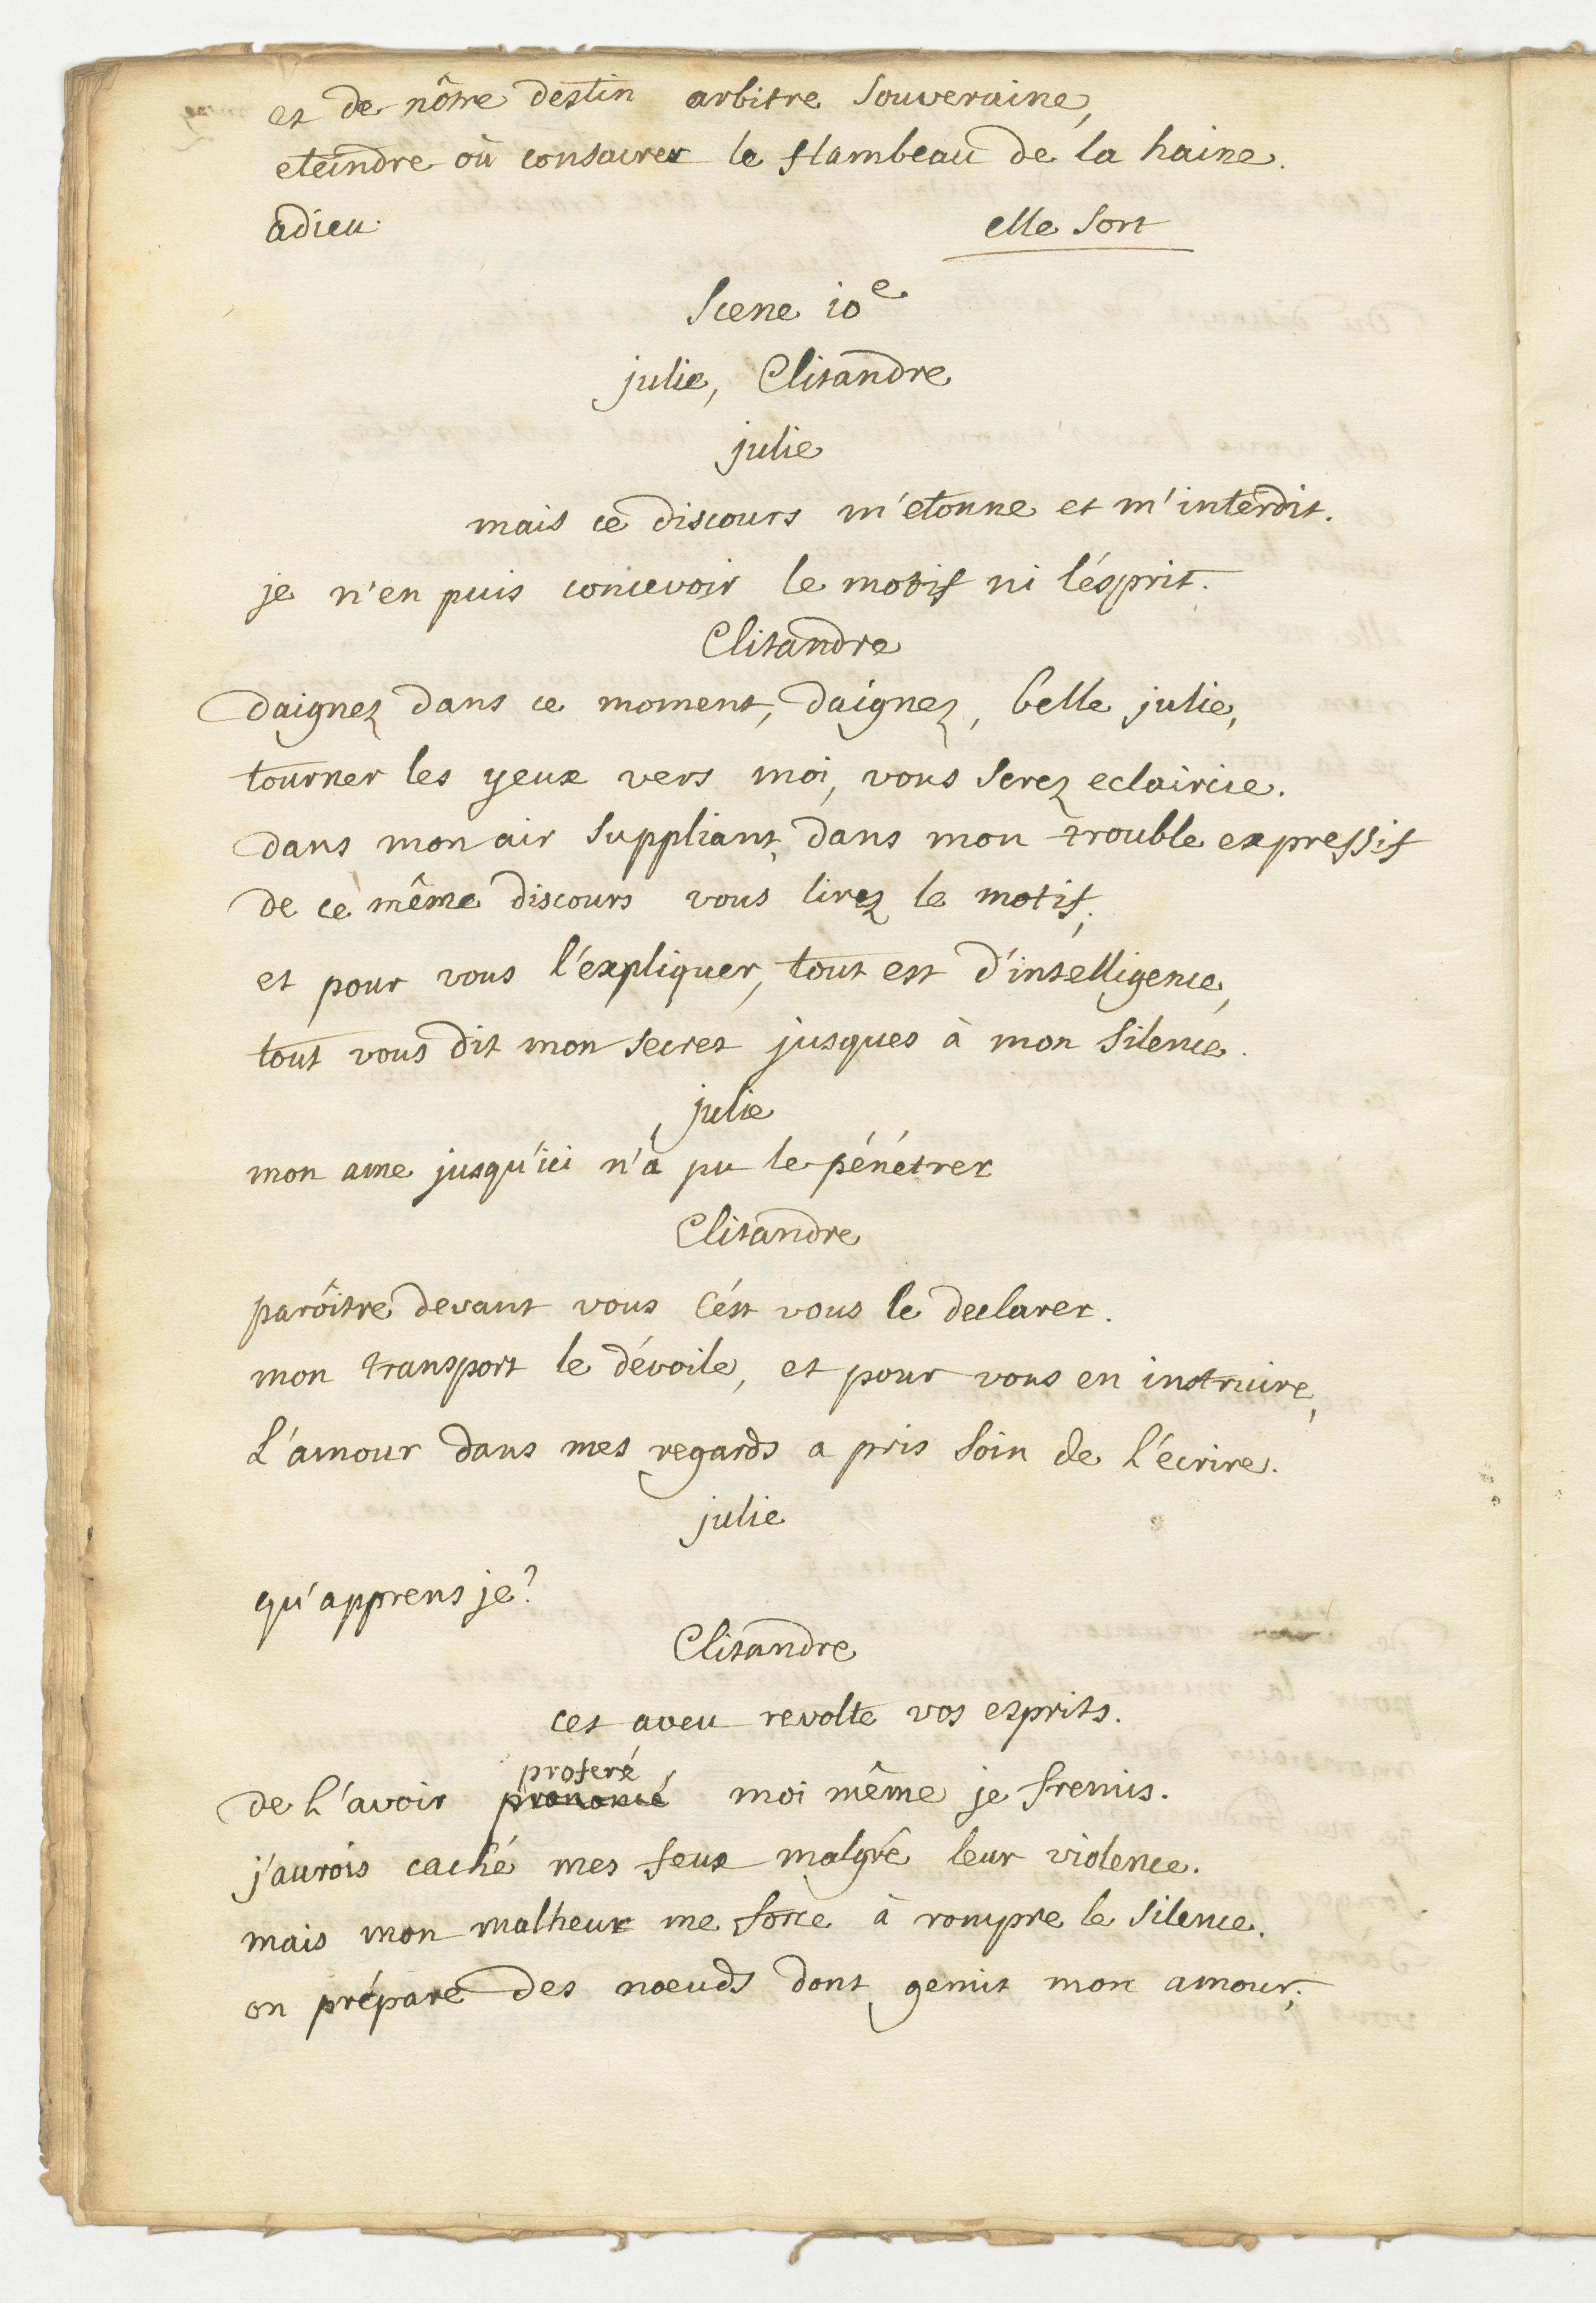 et de nôtre destin arbitre souveraine,
eteindre où consacrer le flambeau de la haine.
adieu. elle sort
Scene 10e
julie, Clitandre
julie
mais ce discours m'etonne et m'interdit.
je n'en puis concevoir le motif ni l'ésprit.
Clitandre
daignez dans ce moment, daignez, belle julie,
tourner les yeux vers moi, vous serez eclaircie.
dans mon air suppliant, dans mon trouble expressif
de ce même discours vous lirez le motif;
et pour vous l'expliquer, tout est d'intelligence,
tout vous dit mon secret jusques à mon silence.
julie
mon ame jusqu'ici n'a pu le pénétrer
Clitandre
parôitre devant vous c'ést vous le declarer.
mon transport le dévoile, et pour vous en instruire,
L'amour dans mes regards a pris soin de l'écrire.
julie
qu'apprens je?
Clitandre
cet aveu revolte vos esprits.
proferé
de l'avoir prononcé moi même je fremis.
j'aurois caché mes feux malgré leur violence.
mais mon malheur me force à rompre le silence.
on prépare des nœuds dont gemit mon amour;